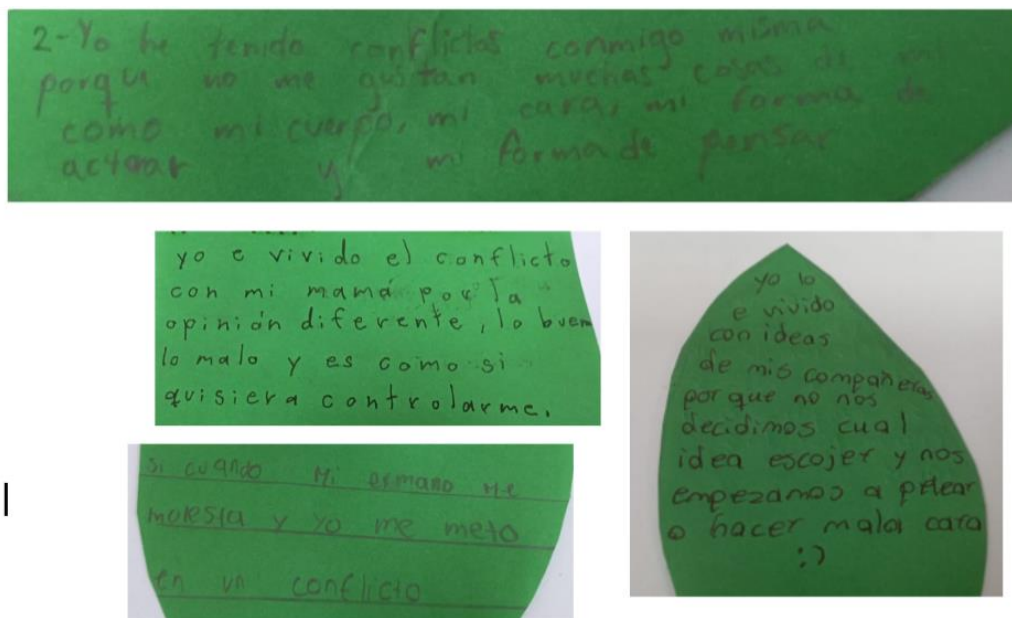 2-Yo he tenido conflictos conmigo misma
porqu no me gustan muchas cosas de mi
como mi cuerpo, mi cara, mi forma de
actuar y mi forma de pensar
yo e vivido el conflicto
con mi mamá por la
opinión diferente, lo buen
lo malo y es como si
quisiera controlarme.
Si cuando Mi ermano Me
molesta y yo me meto
en un conflicto
yo lo
e vivido
con ideas
de mis compañeras
porque no nos
decidimos cual
idea escojer y nos
empezamos a pelear
o hacer mala cara
:)